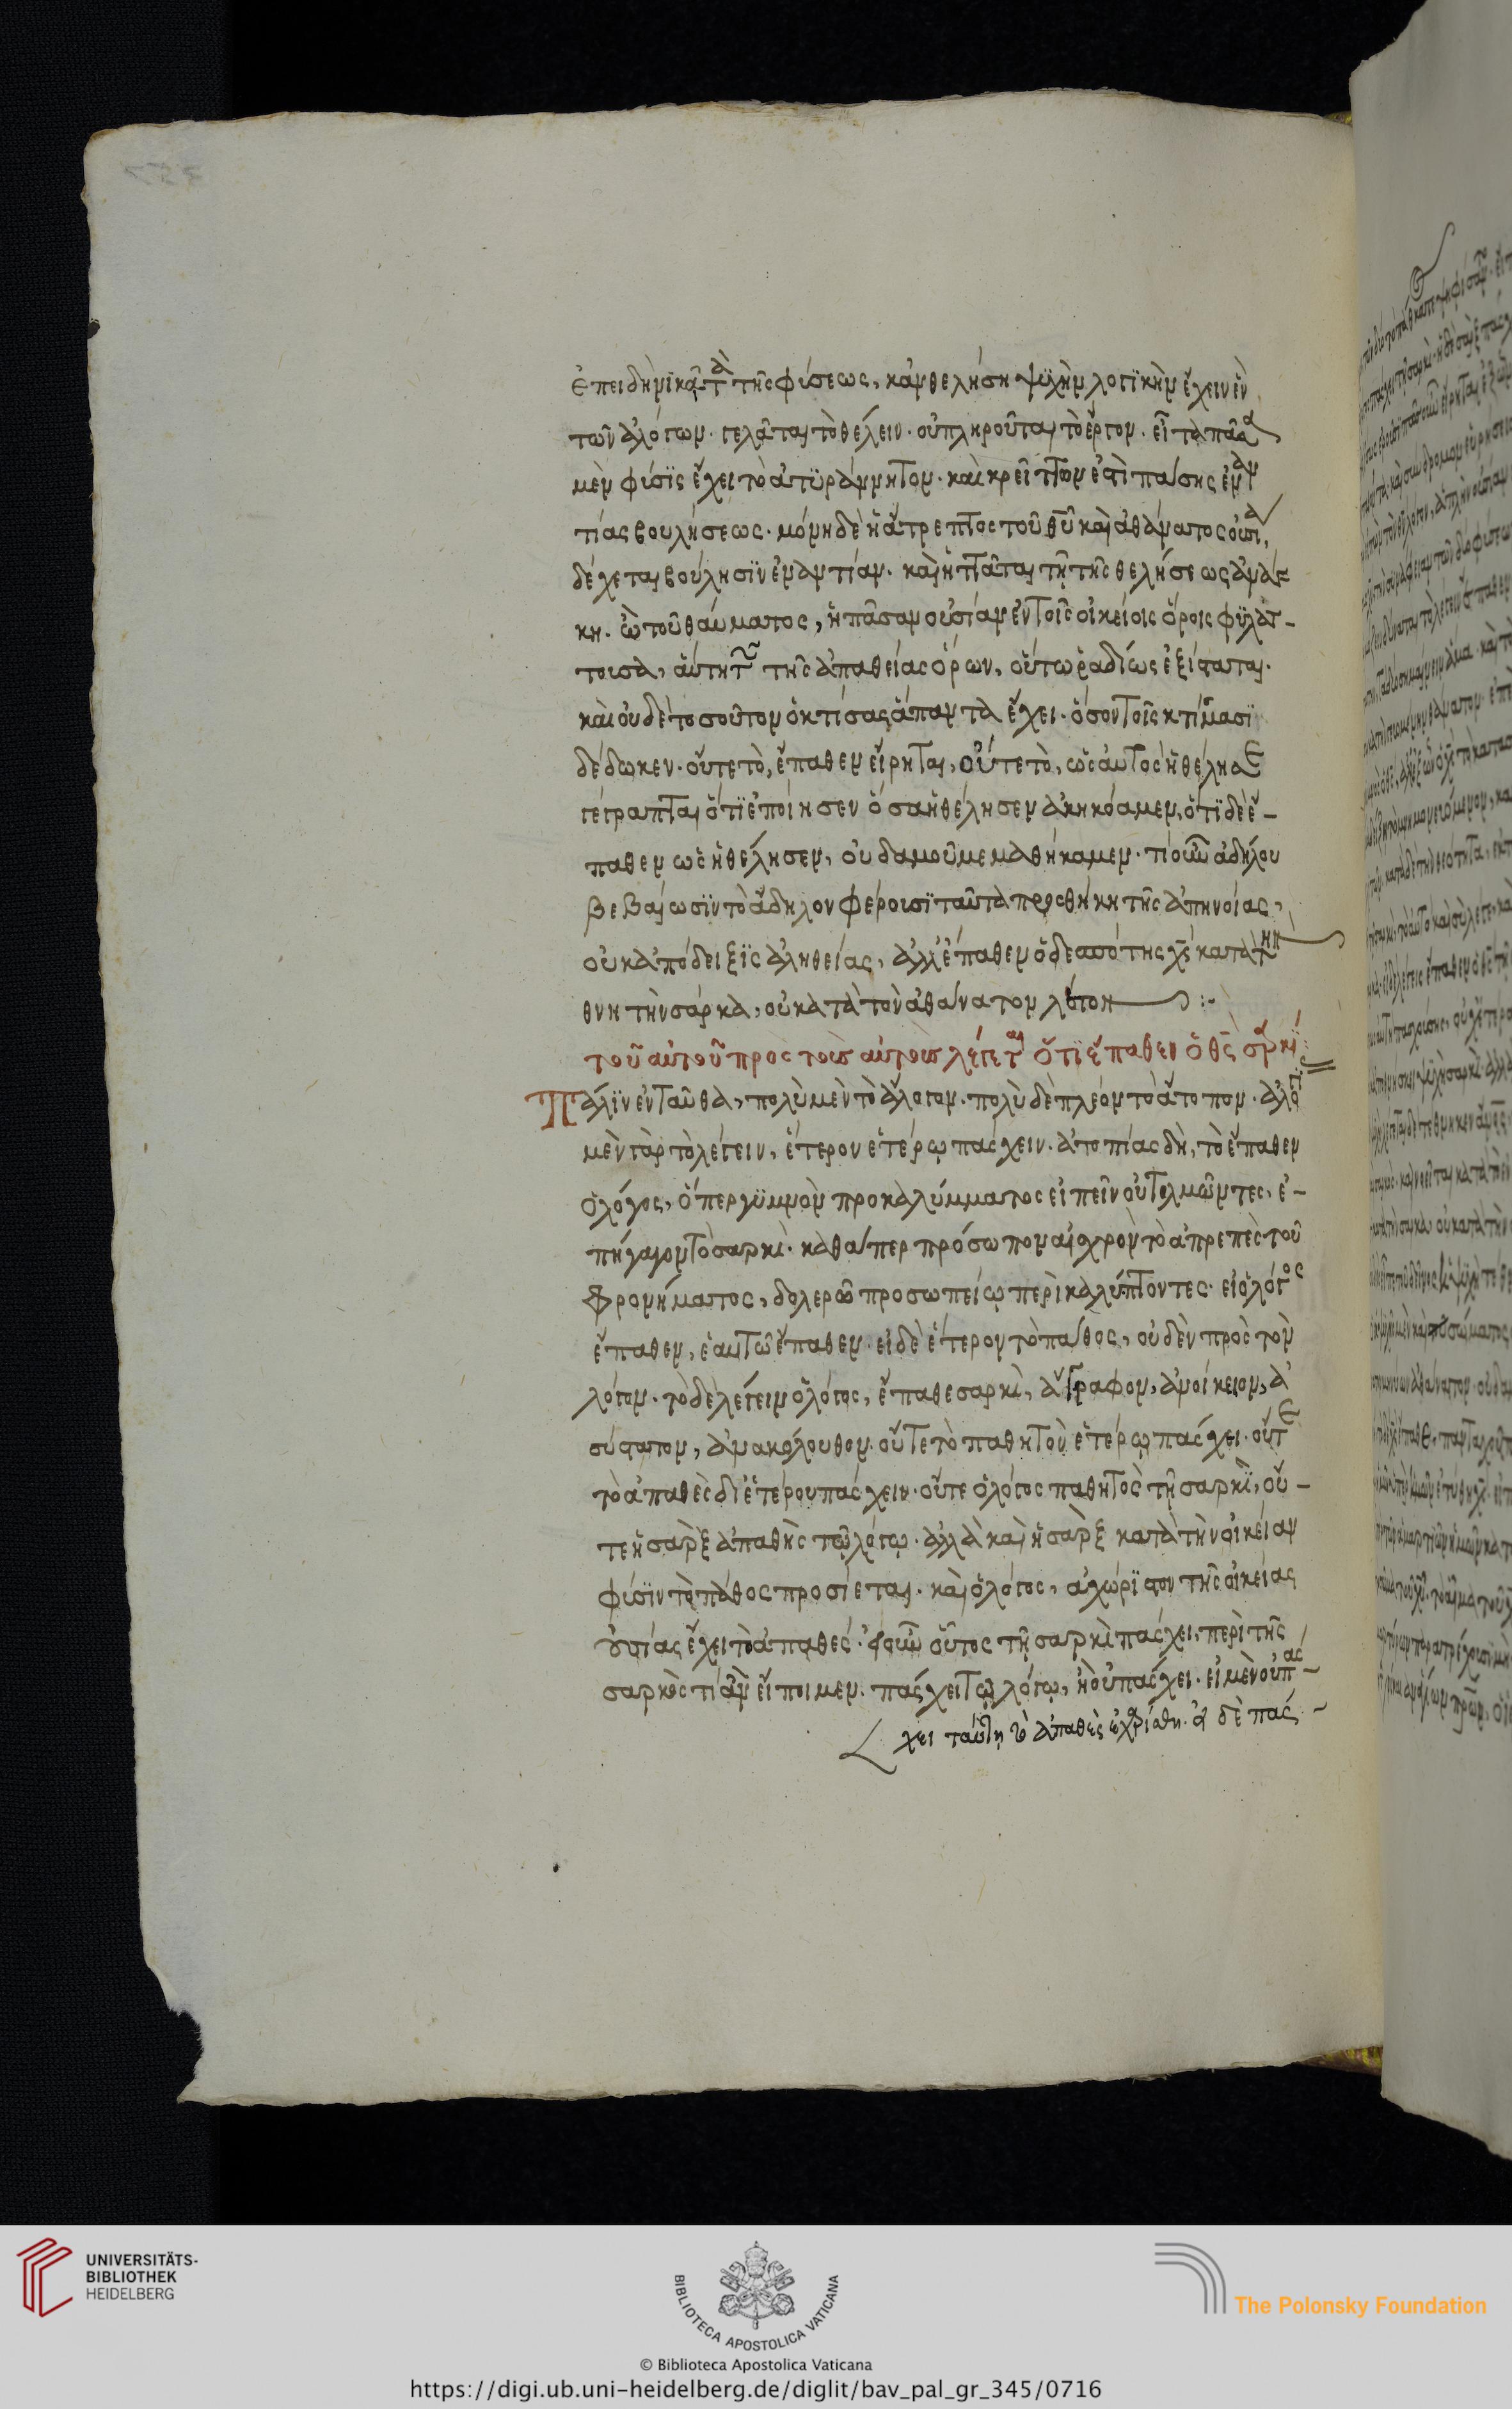 ἐπειδὴ νϊκᾶτ τὰ τῆς φύσεως, κἀν θελήση ψυχὴν λογϊκὴν ἔχειν ἓν
τῶν ἀλόγων. γελᾶται τὸ θέλειν. οὐ πληροῦται τὸ ἔργον. εἶτα πᾶσα
μὲν φύσϊς ἔχει τὸ ἀντϋράμμητον. καὶ κρεῖττον ἐστὶ πάσης ἐναν
τίας βουλήσεως. μόνη δὲ ἡ ἄτρεπτος τοῦ θῦ καὶ ἀθάνατος οὐσία,
δέχεται βούλησϊν ἐναντίαν. καὶ ἡττᾶται τῆ τῆς θελήσεως ἀνάγ
κη. ὢ τοῦ θαύματος, ἡ πᾶσαν οὐσίαν ἐν τοῖς οἰκείοις ὅροις φϋλάτ-
τουσα, αὐτὴ τῶν τῆς ἀπαθείας ὅρων, οὕτω ῥαδίως ἐξίσταται.
καὶ οὐδὲ τοσοῦτον ὁ κτίσας ἅπαντα ἔχει. ὅσον τοῖς κτίσμασϊ
δέδωκεν. οὔτε τὸ, ἔπαθεν εἴρηται, οὔτε τὸ, ὡς αὐτὸς ἠθέλησε
γέγραπται ὅτϊ ἐποίησεν ὅσα ἠθέλησεν ἀκηκόαμεν, ὅτϊ δὲ ἔ-
παθεν ὡς ἠθέλησεν, οὐδαμοῦ μεμαθήκαμεν. τί οὖν ἀδήλου
βεβαίωσϊν τὸ ἄδηλον φέρουσϊ ταῦτα προσθήκη τῆς ἀπηνοίας,
οὐκ ἀπόδειξϊς ἀληθείας, ἀλλ' ἔπαθεν ὁ δεσπότης χς κατὰ τὴν
θνητὴν σάρκα, οὐ κατὰ τὸν ἀθάνατον λόγον :-
τοῦ αὐτοῦ πρὸς τοὺς αὐτοὺς λέγεται ὅτϊ ἔπαθεν ὁ θς σαρκί:
Πάλϊν ἐνταῦθα, πολὺ μὲν τὸ ἄλογον. πολὺ δὲ πλέον τὸ ἄτοπον. ἀλογί
μὲν γὰρ τὸ λέγειν, ἕτερον ἑτέρῳ πάσχειν. ἀτοπίας δὴ, τὸ ἔπαθεν
ὁ λόγος, ὅπερ γϋμνὸν προκαλύμματος εἰπεῖν οὐ τολμῶντες, ἐ-
πήγαγον τὸ σαρκὶ. καθάπερ πρόσωπον αἰσχρὸν τὸ ἀπρεπὲς τοῦ
φρονήματος, δολερῶ προσωπείῳ περὶκαλύπτοντες. εἰ ὁ λόγος
ἔπαθεν, ἑαυτῶ ἔπαθεν. εἰ δὲ ἕτερον τὸ πάθος, οὐδὲν πρὸς τὸν
λόγον. τὸ δὲ λέγειν ὁ λόγος, ἔπαθε σαρκὶ, ἄγραφον, ἀνοίκειον, ἀ
σύστατον, ἀνακόλουθον. οὔτε τὸ παθητὸν ἑτέρῳ πάσχει. οὔτε
τὸ ἀπαθὲς δι' ἑτέρου πάσχειν. οὔτε ὁ λόγος παθητὸς τῆ σαρκϊ, οὔ-
τε ἡ σὰρξ ἀπαθὴς τῶ λόγῳ. ἀλλὰ καὶ ἡ σὰρξ κατὰ τὴν οἰκείαν
φύσϊν τὸ πάθος προσίεται. καὶ ὁ λόγος, ἀχώρϊστον τῆς οἰκείας
οὐσίας ἔχει τὸ ἀπαθές. οὖν οὗτος τῆ σαρκὶ πάσχει, περὶ τῆς
σαρκὸς τί ἂν εἴποιμεν. πάσχει τῷ λόγῳ, ἢ οὐ πάσχει. εἰ μὲν οὐ πάσ-
χει ταύτη τὸ ἀπαθὲς ἐχαρίσθη. εἰ δὲ πάσ-
UNIVERSITÄTS-
BIBLIOTHEK
HEIDELBERG
BIBLIOTECA APOSTOLICA VATICANA
The Polonsky Foundation
© Biblioteca Apostolica Vaticana
https://digi.ub.uni-heidelberg.de/diglit/bav_pal_gr_345/0716